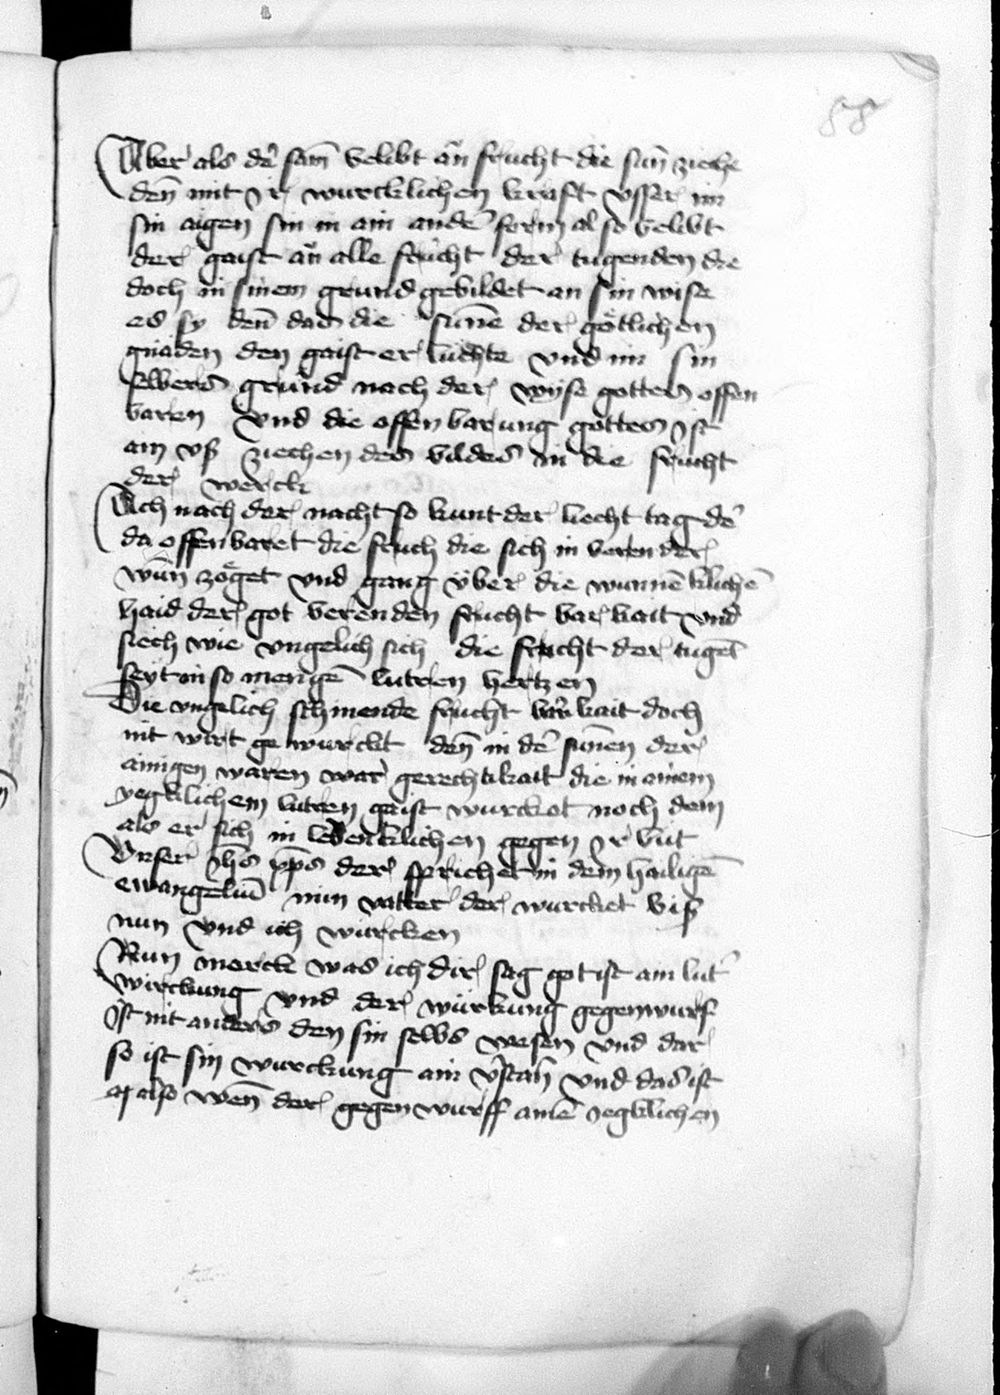 88
Aber als dē sam̄ belibt ān frucht die sun̄ ziehe
den̄ mit ir wurcklichen kraft vsser im
sin aigen sin in ain andē form also belibt
der gaist ān alle frucht der tugenden die
doch in sinem grund gebildet an sin wise
es sy den̄ das die sun̄e der götlichen
gnaden den gaist er lúchte vnd im sin
selbers grund nach der wyse gottes offen
baren vnd die offen barung gottes ist
ain vß ziechen des bildes in die frucht
der werck
Ach nach der nacht so kunt der liecht tag dē
da offenbaret die fruch die sich in beren der
wun̄ zöget vnd gang über die wunnēklichē
haid der got berenden frucht barkait vnd
siech wie vngelich sich die frucht der tugēt
seyt in so mengē lutren hertzen
Die vngelich schinende frucht bar kait doch
nit wirt ge wurckt den̄ in dē sun̄en der
ainigen waren war gerechtikait die in ainem
yegklichem lutren gaist wurcket noch dem
als er sich in lebenklichen gegen ir but
Vnser ihs xp̄s der sprichet in dem hailigē
ewangeliū min vatter der wurcket biß
nun vnd ich wurcken
Nun merck was ich dir sag got ist ain lut
wirckung vnd der würkung gegenwurf
ist nit anders den sin selbs wesen vnd dar
so ist sin wurckung ain v̄stan̄ vnd das ist
also wen̄ der gegen wurff ainē iegklichen